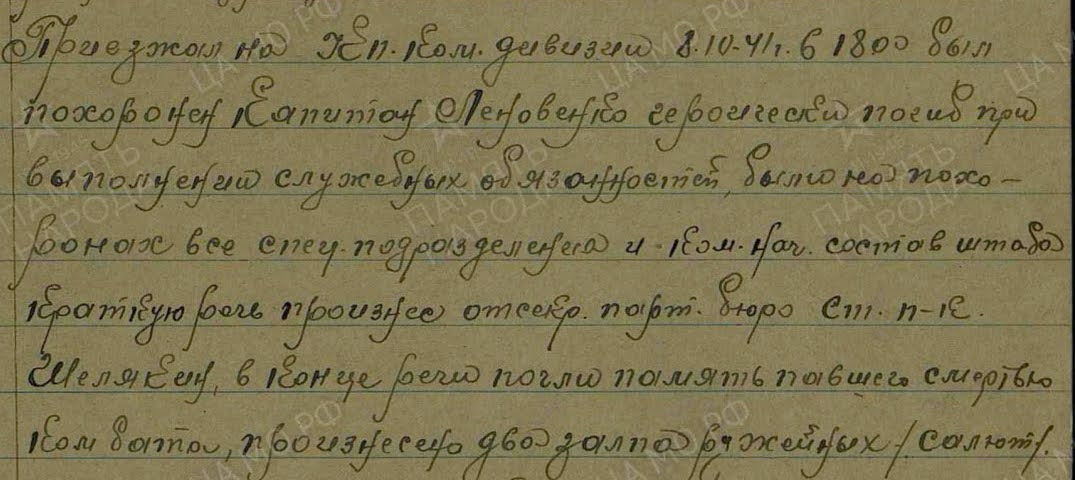 Приезжал на Кп. Ком. дивизии 8.10-41г. в 1800 был
похоронен Капитан Леновенко героически погиб при
выполнении служебных обязанностей, были на похо-
ронах все спец. подразделения и ком. нач. состав штаба
краткую речь произнес отсекр. парт. бюро ст. п-к.
Шелякин, в конце речи почли память павшего смертью
Комбата, произнесено два залпа ружейных /салют/.